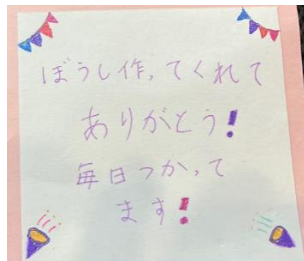 ぼうし作ってくれて
ありがとう!
毎日つかって
ます!